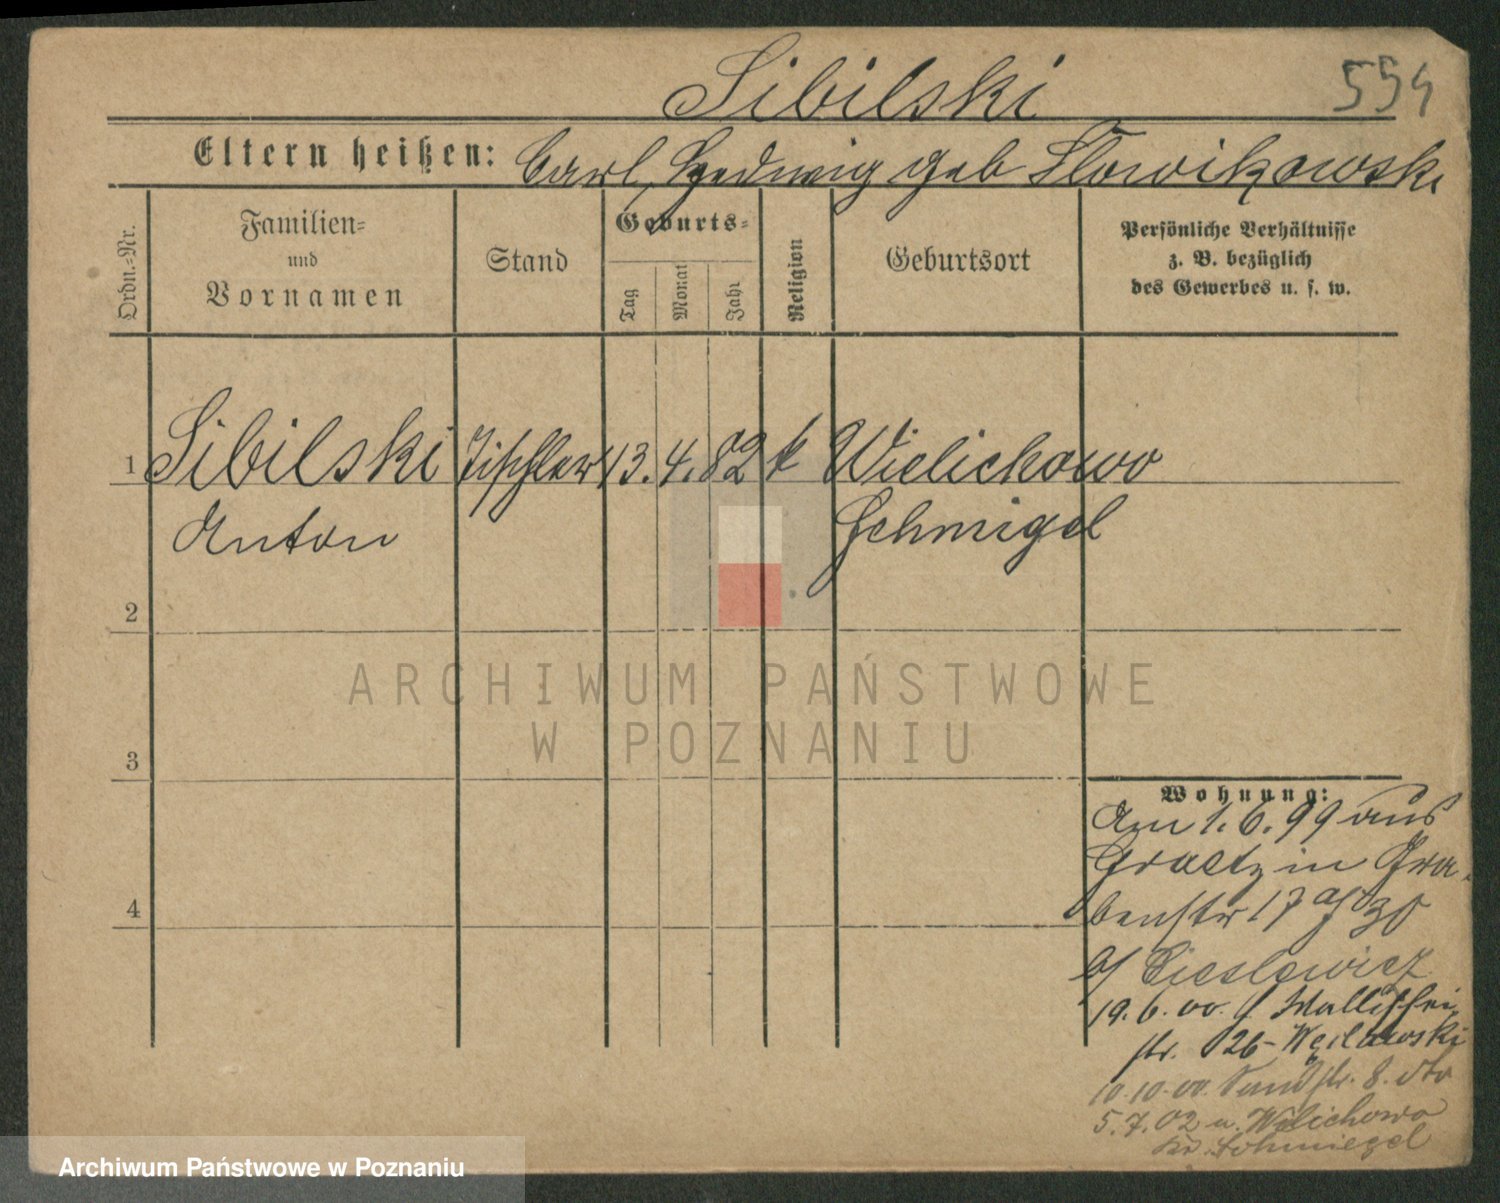 Sibilski
554
Eltern heißen: Carl, Hedwig geb Slowikowski
Ordn.-Nr.
Familien-
und
Vornamen
Stand
Geburts-
Tag
Monat
Jahr
Religion
Geburtsort
Persönliche Verhältnisse
z. B. bezüglich
des Gewerbes u. s. w.
1 Sibilski Tischler 13. 4. 82 k Wielichowo
Anton Schmigel
2
ARCHIWUM PAŃSTWOWE
W POZNANIU
3
4
Wohnung:
Am 1.6.99 aus
Graetz in Gra-
benstr 17 a/30
b/ Cieslewicz
19.6.00. Wallischei
str. 26-
10.10.00. Sandstr. 8. dto
5.7.02 n. Wielichowo
Kr. Schmiegel
Archiwum Państwowe w Poznaniu